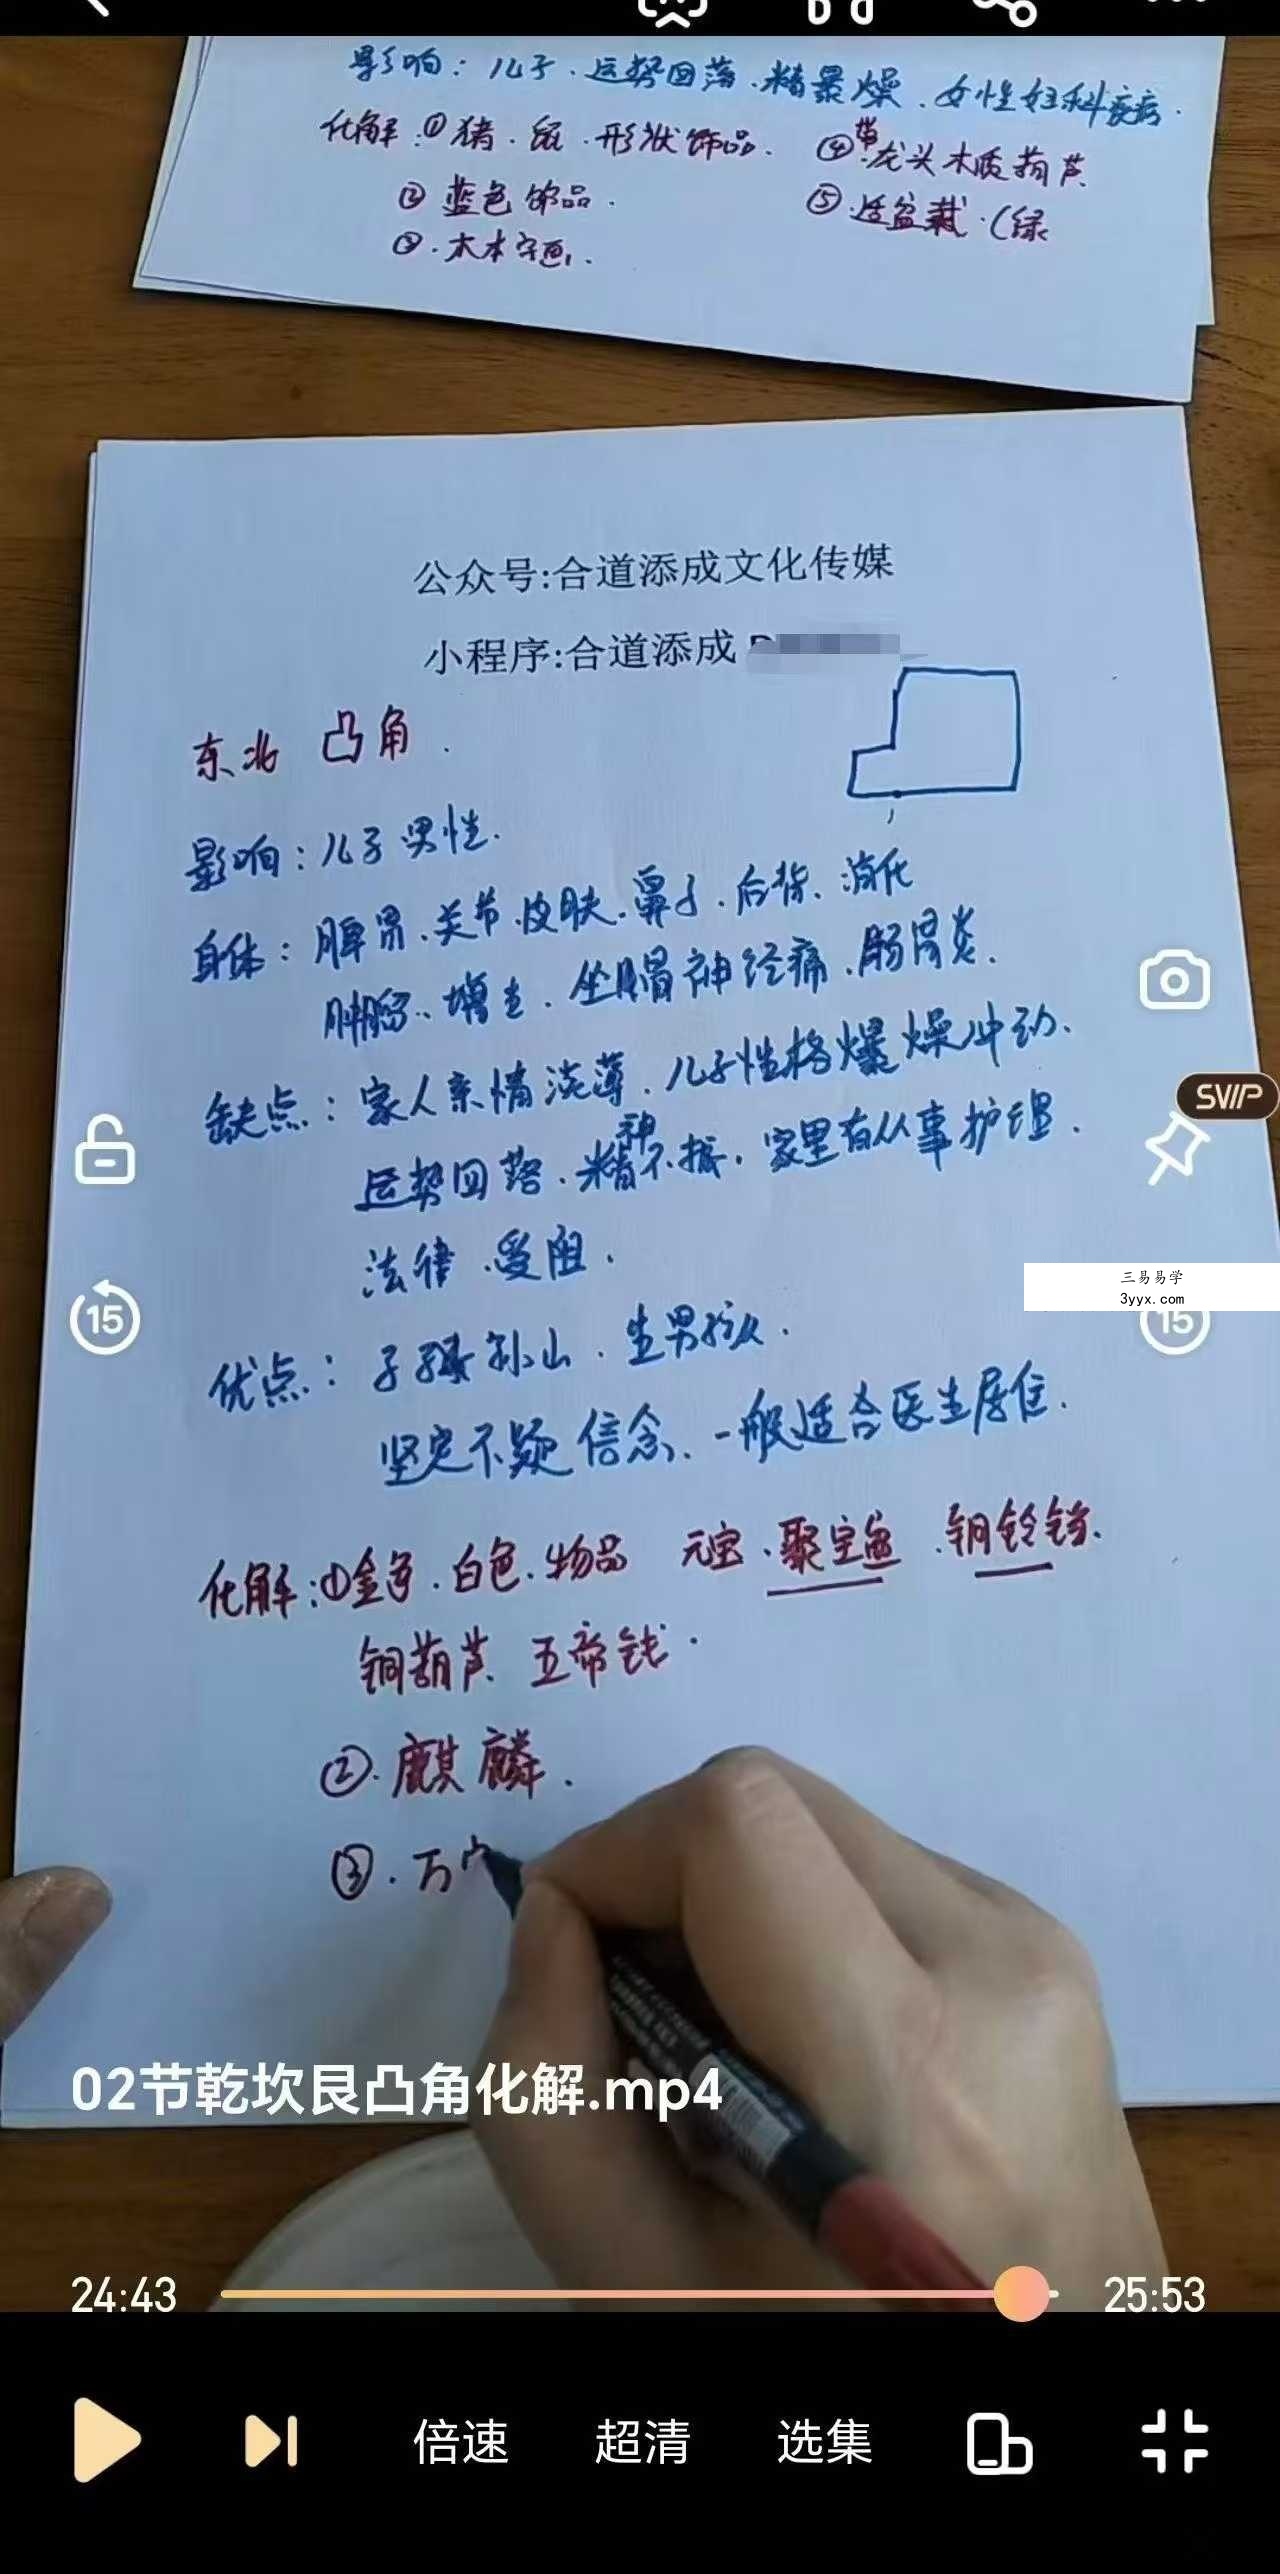 影响：儿子．运势回落．精暴燥．女性妇科疾病．
化解：①猪．鼠．形状饰品． ④带龙头木质葫芦
② 蓝色饰品． ⑤．适盆栽．（绿
③．木本字画．
公众号:合道添成文化传媒
小程序:合道添成
东北 凸角．
影响：儿子男性．
身体：脾胃、关节．皮肤．鼻子．后背．消化
肿瘤．增生．坐骨神经痛．肠胃炎．
缺点：家人亲情淡薄．儿子性格爆燥冲动．
运势回落．精神不振．家里有从事护理．
法律．受阻．
优点：子孙山．生男孩
坚定不疑信念．一般适合医生居住．
化解：①金色．白色．物品 元宝．聚宝盆．铜铃铛．
铜葫芦 五帝钱．
②．麒麟．
③．万
SVIP
三易易学
3yyx.com
15
15
02节乾坎艮凸角化解.mp4
24:43
25:53
倍速
超清
选集